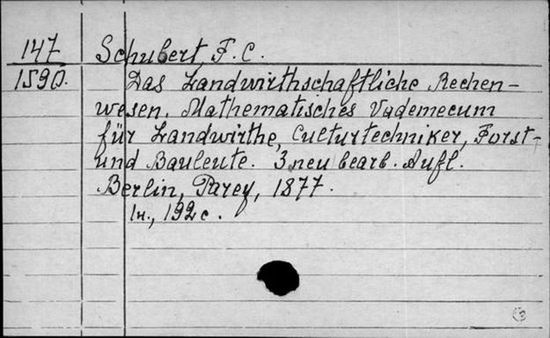 147
1590.
Schubert, F. C.
Das Landwirthschaftliche Rechen-
wesen. Mathematisches Vademecum
für Landwirthe, Culturtechniker, Forst-
und Bauleute. 3 neu bearb. Aufl.
Berlin, Parey, 1877.
1н., 192 с.